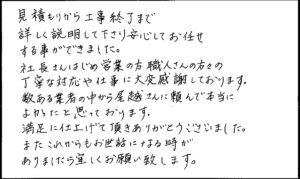 見積もりから工事終了まで
詳しく説明して下さり安心してお任せ
する事ができました。
社長さんはじめ営業の方職人さんの方々の
丁寧な対応や仕事に大変感謝しております。
数ある業者の中から尾越さんに頼んで本当に
よかったと思っております。
満足に仕上げて頂きありがとうございました。
またこれからもお世話になる時が
ありましたら宜しくお願い致します。